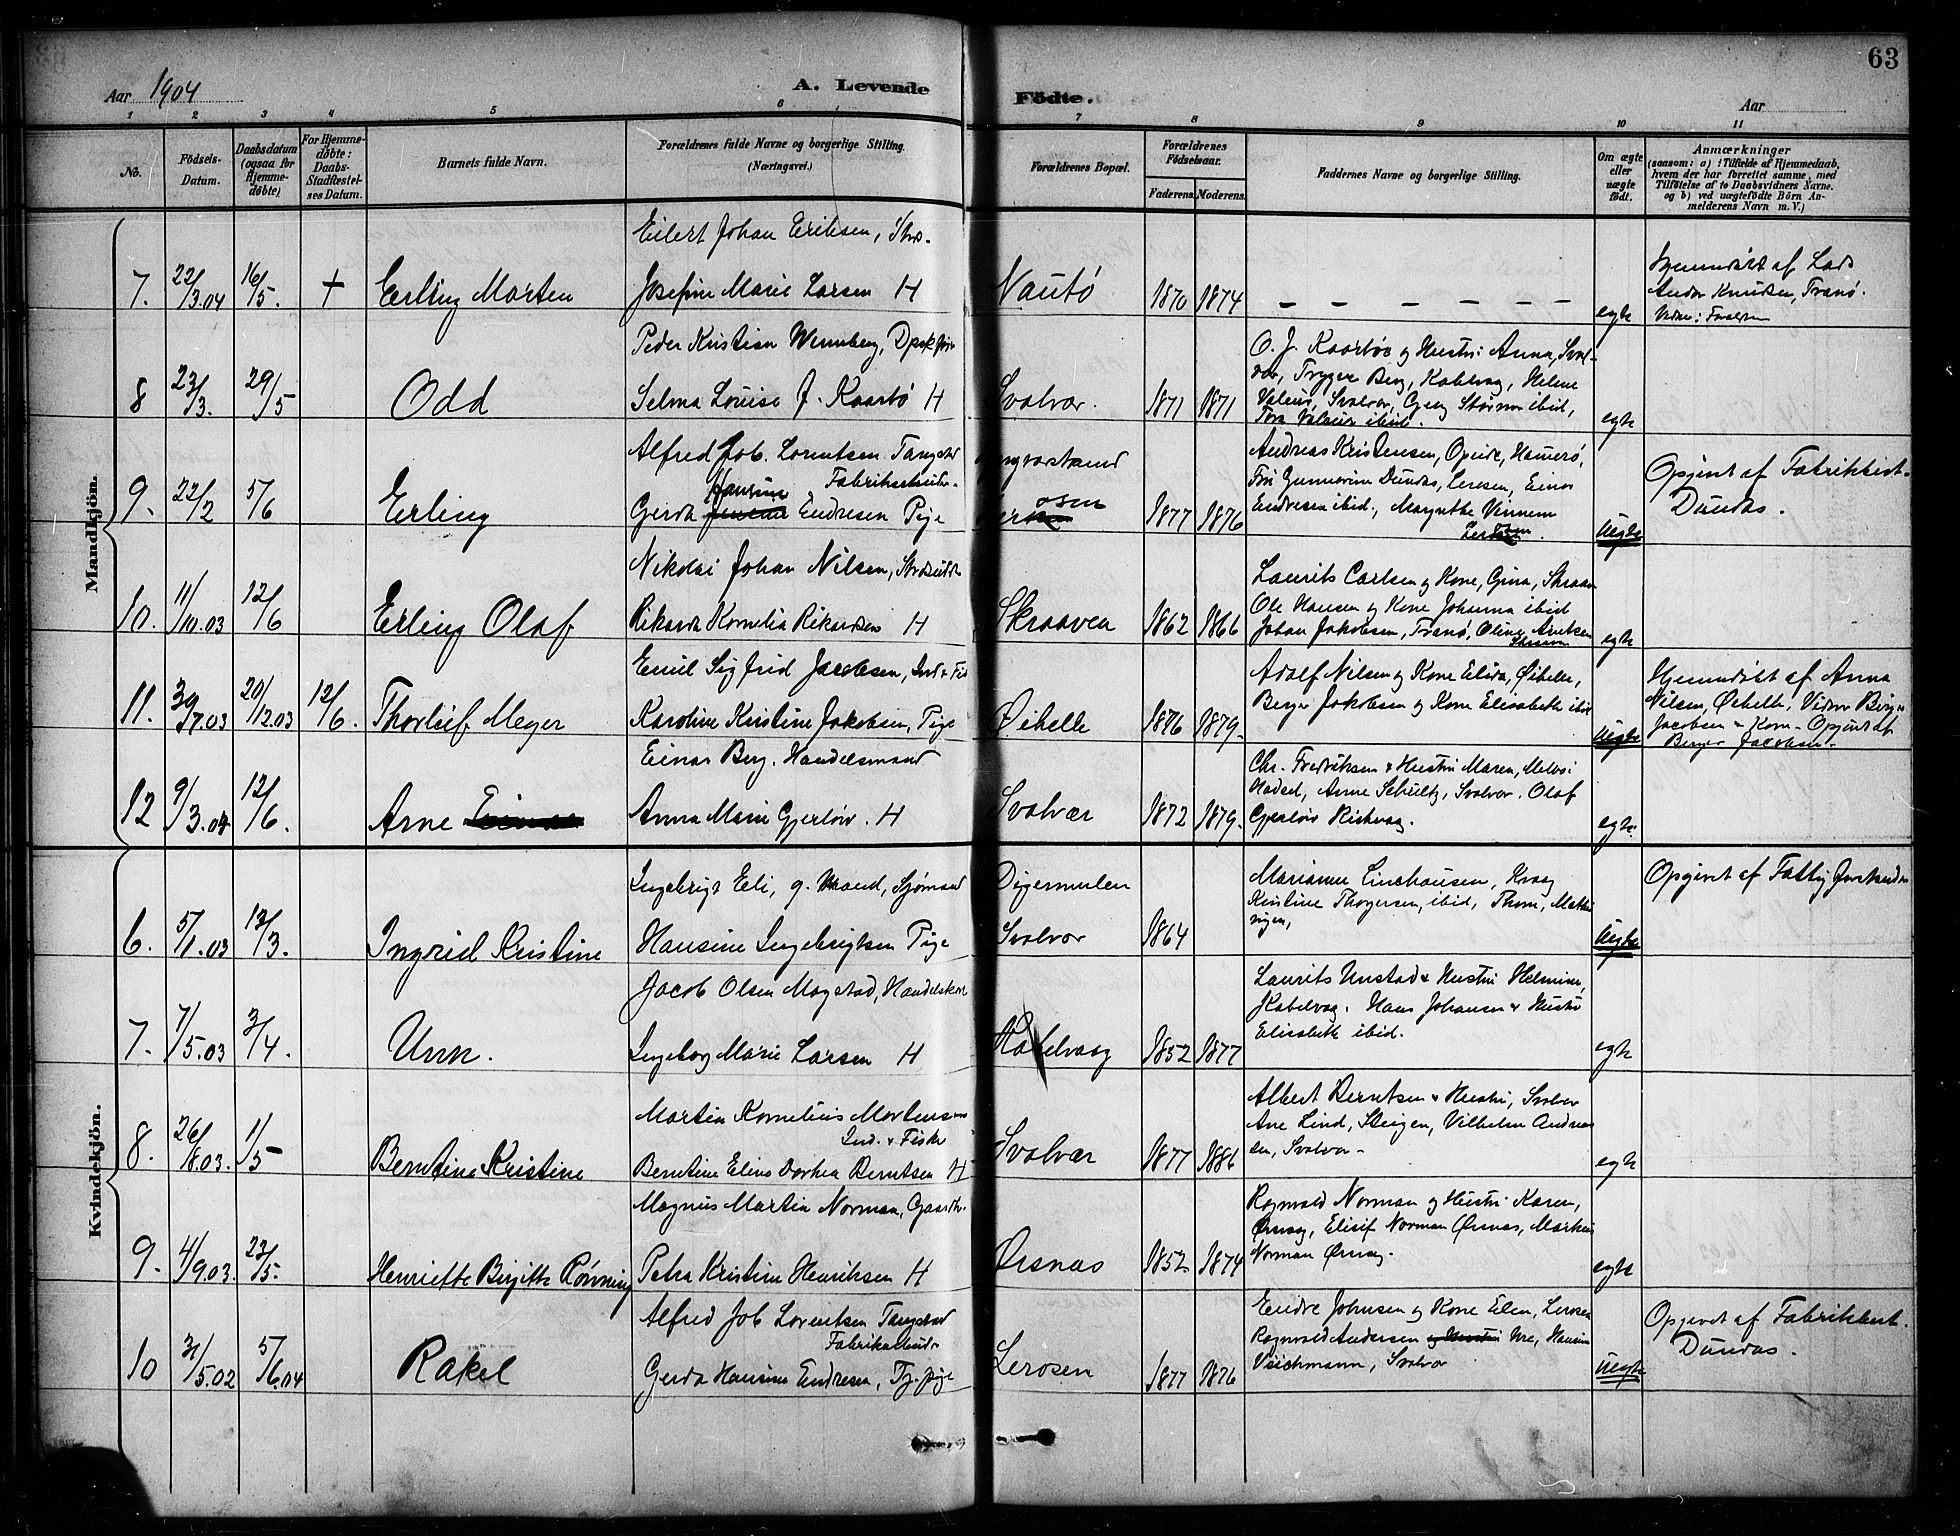 63
Aar 1904
A. Levende Fødte.
Aar
1 2 3 4 5 6 7 8 9 10 11
No.
Fødsels-Datum.
Daabsdatum (ogsaa for Hjemmedøbte)
For Hjemmedøbte: Daabs-Stadfæstelses Datum.
Barnets fulde Navn.
Forældrenes fulde Navne og borgerlige Stilling. (Næringsvei.)
Forældrenes Bopæl.
Forældrenes Fødselsaar.
Faderens. Moderens.
Faddernes Navne og borgerlige Stilling.
Om ægte eller uægte født.
Anmærkninger
(saasom: a) i Tilfælde af Hjemmedaab, hvem der har forrettet samme, med Tilføielse af to Daabsvidners Navne. og b) ved uægtefødte Børn Anmelderens Navn m. V.)
Mandkjön.
Eilert Johan Eriksen,
7. 22/3.04 16/5. + Erling Morten Josefine Marie Larsen H Nautø 1870 1874 – – – – – – egte
Hjemmedøbt af Lars
Andor Knudsen, Tranø.
Peder Kristian Wennberg,
8 23/3. 29/5 Odd Selma Louise J. Kaarbø H Svolvær. 1871 1871 egte
O. J. Kaarbø og Hustru Anna, Svol-
vær, Trygve Berg, Kabelvag, Helene
Valeur, Svolvær, Georg Størmer ibid,
Tora Valeur ibid.
Alfred Job. Lorentsen Tangstad
Fabrikarbeider
Hansine
9. 22/2 5/6 Erling Gerda Endresen Pige osen 1877 1876 Uegte
Andreas Kristensen, Opeide, Hamerø,
Frk Gunnarine Dundas, Lerosen, Einar
Endresen ibid., Margrethe Vinnem
Opgivet af Fabrikbest.
Dundas.
Nikolai Johan Nilsen,
10. 11/10.03 12/6 Erling Olaf Rikarda Kornelia Rikardsen H Skraaven 1862 1866 egte
Laurits Carlsen og Kone, Gina, Skraav
Ole Hansen og Kone Johanna ibid
Johan Jakobsen, Tranø, Oline
Emil Sigfrid Jacobsen, Ind. & Fisk
11. 30/7.03 20/12.03 12/6. Thorleif Meyer Karoline Kristine Jakobsen, Pige Øihelle 1876 1879. Uegte
Adolf Nilsen og Kone Elida, Øihelle,
Berger Jakobsen og Kone Elisabeth ibid
Hjemmedøbt af Anna
Nilsen, Øihelle, Vidner Birger
Jacobsen & Kone. Opgivet af
Berger Jacobsen.
Einar Berg, Handelsmand
12 9/3.04 12/6. Arne Anna Marie Gjerløw. H Svolvær 1872 1879. egte.
Chr. Fredriksen & Hustru Maren, Melbo
Hadsel, Anne Schultz, Svolvær. Olaf
Gjerløw Risvag.
Kvindekjön.
Ingebrigt Eli, g. Mand, Sjømand Digermulen
6. 5/1.03 13/3. Ingrid Kristine Hansine Ingebrigtsen Pige Svolvær 1864 Uegte
Marianne Linchausen,
Kristine Thorgersen, ibid, Thom,
Opgivet af Fattigforstander
Jacob Olsen Mogstad,
7. 7/5.03 3/4. Unn. Ingeborg Marie Larsen H Kabelvaag 1852 1877 egte
Laurits Unstad & Hustru Helmine,
Kabelvag. Hans Johansen & Hustru
Elisabeth ibid.
Martin Kornelius Mortensen
Ind. & Fisker
8. 26/8.03. 1/5 Berntine Kristine Berntine Elina Dorthea Berntsen H Svolvær 1877 1886 egte
Albert Berntsen & Hustru, Svolvær
Ane Lind, Steigen, Vilhelm Andreas
sen, Svolvær
Magnus Martin Norman, Gaardbr.
9. 4/9.03. 23/5. Henriette Birgitte Rønning Petra Kristine Henriksen H Ørsnæs 1852 1874 egte
Ragnvald Norman og Hustru Karen,
Ørsvag, Elisif Norman Ørsnæs,
Norman Ørsvag.
Alfred Job Lorentsen Tangstad
Fabrikarbeider
10 31/5.02 5/6.04 Rakel Gerda Hansine Endresen, Tj. pige Lerosen 1877 1876 Uegte
Endre Johnsen og Kone Elen, Lerosen
Ragnvald Andersen og Hustru Hansine
Veichmann, Svolvær
Opgivet af Fabrikbest.
Dundas.